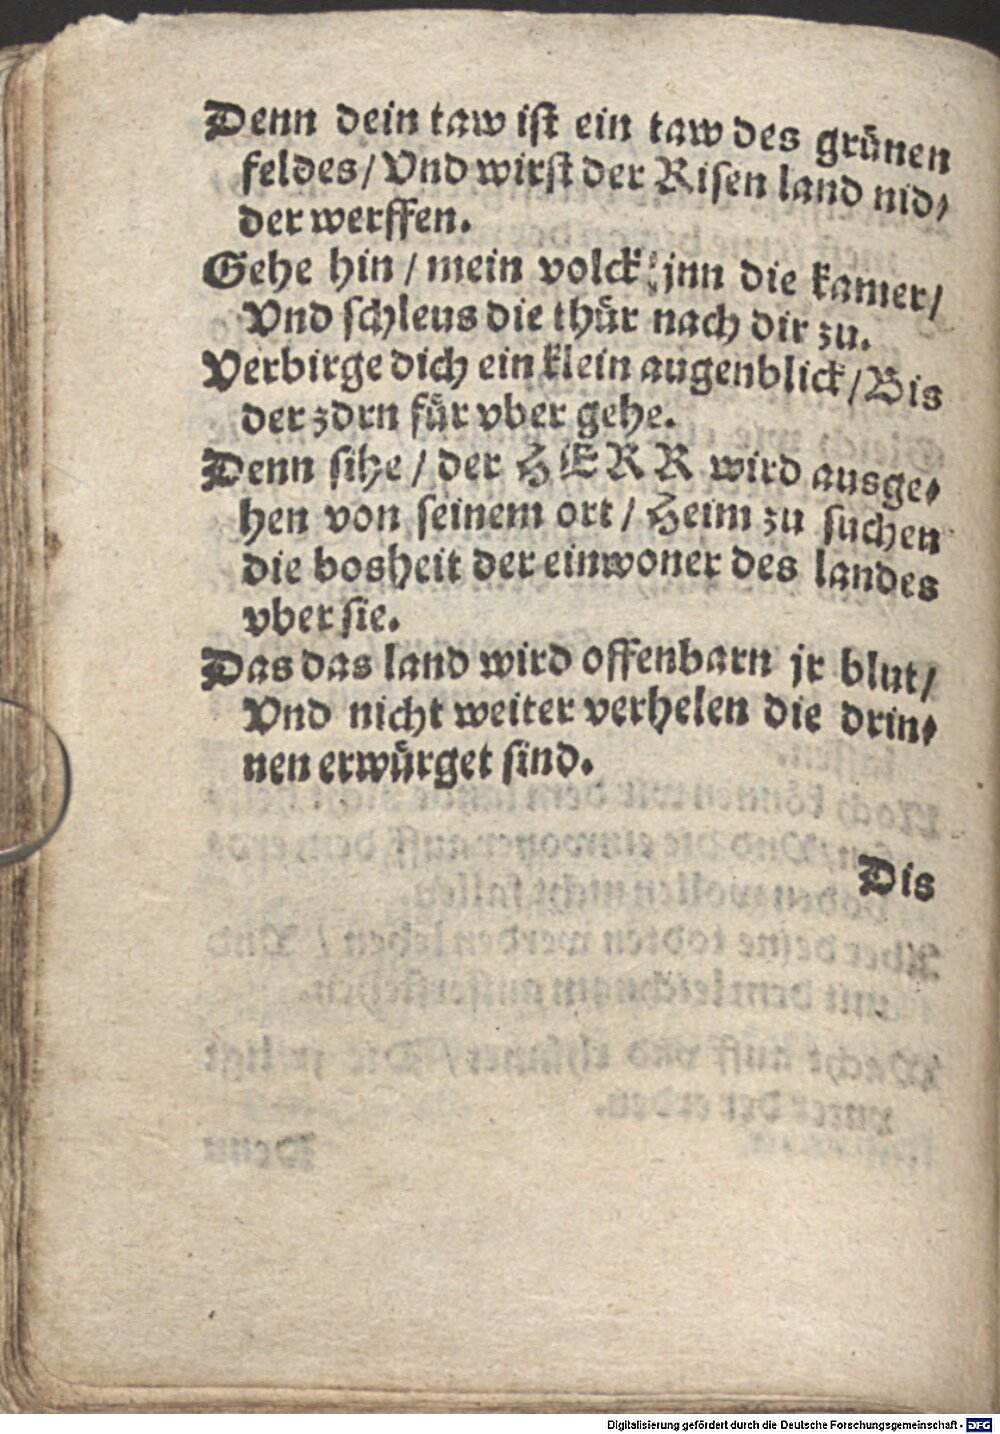 Denn dein taw ist ein taw des grünen
feldes / Vnd wirst der Risen land nid⸗
der werffen.
Gehe hin / mein volck jnn die kamer /
Vnd schleus die thür nach dir zu.
Verbirge dich ein klein augenblick / Bis
der zorn für vber gehe.
Denn sihe / der HERR wird ausge⸗
hen von seinem ort / Heim zu suchen
die bosheit der einwoner des landes
vber sie.
Das das land wird offenbarn jr blut /
Vnd nicht weiter verhelen die drin⸗
nen erwürget sind.
Dis
Digitalisierung gefördert durch die Deutsche Forschungsgemeinschaft - DFG